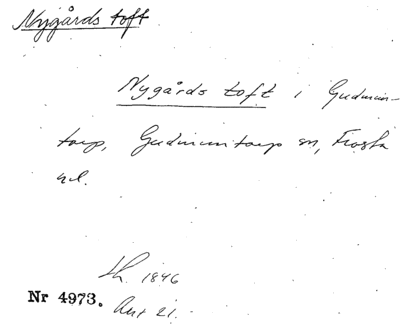 Nygårds toft
Nygårds toft i Gudmun-
torp, Gudmuntorp sn, Frosta
hd.
Sk. 1846
Nr 4973. Akt 21.